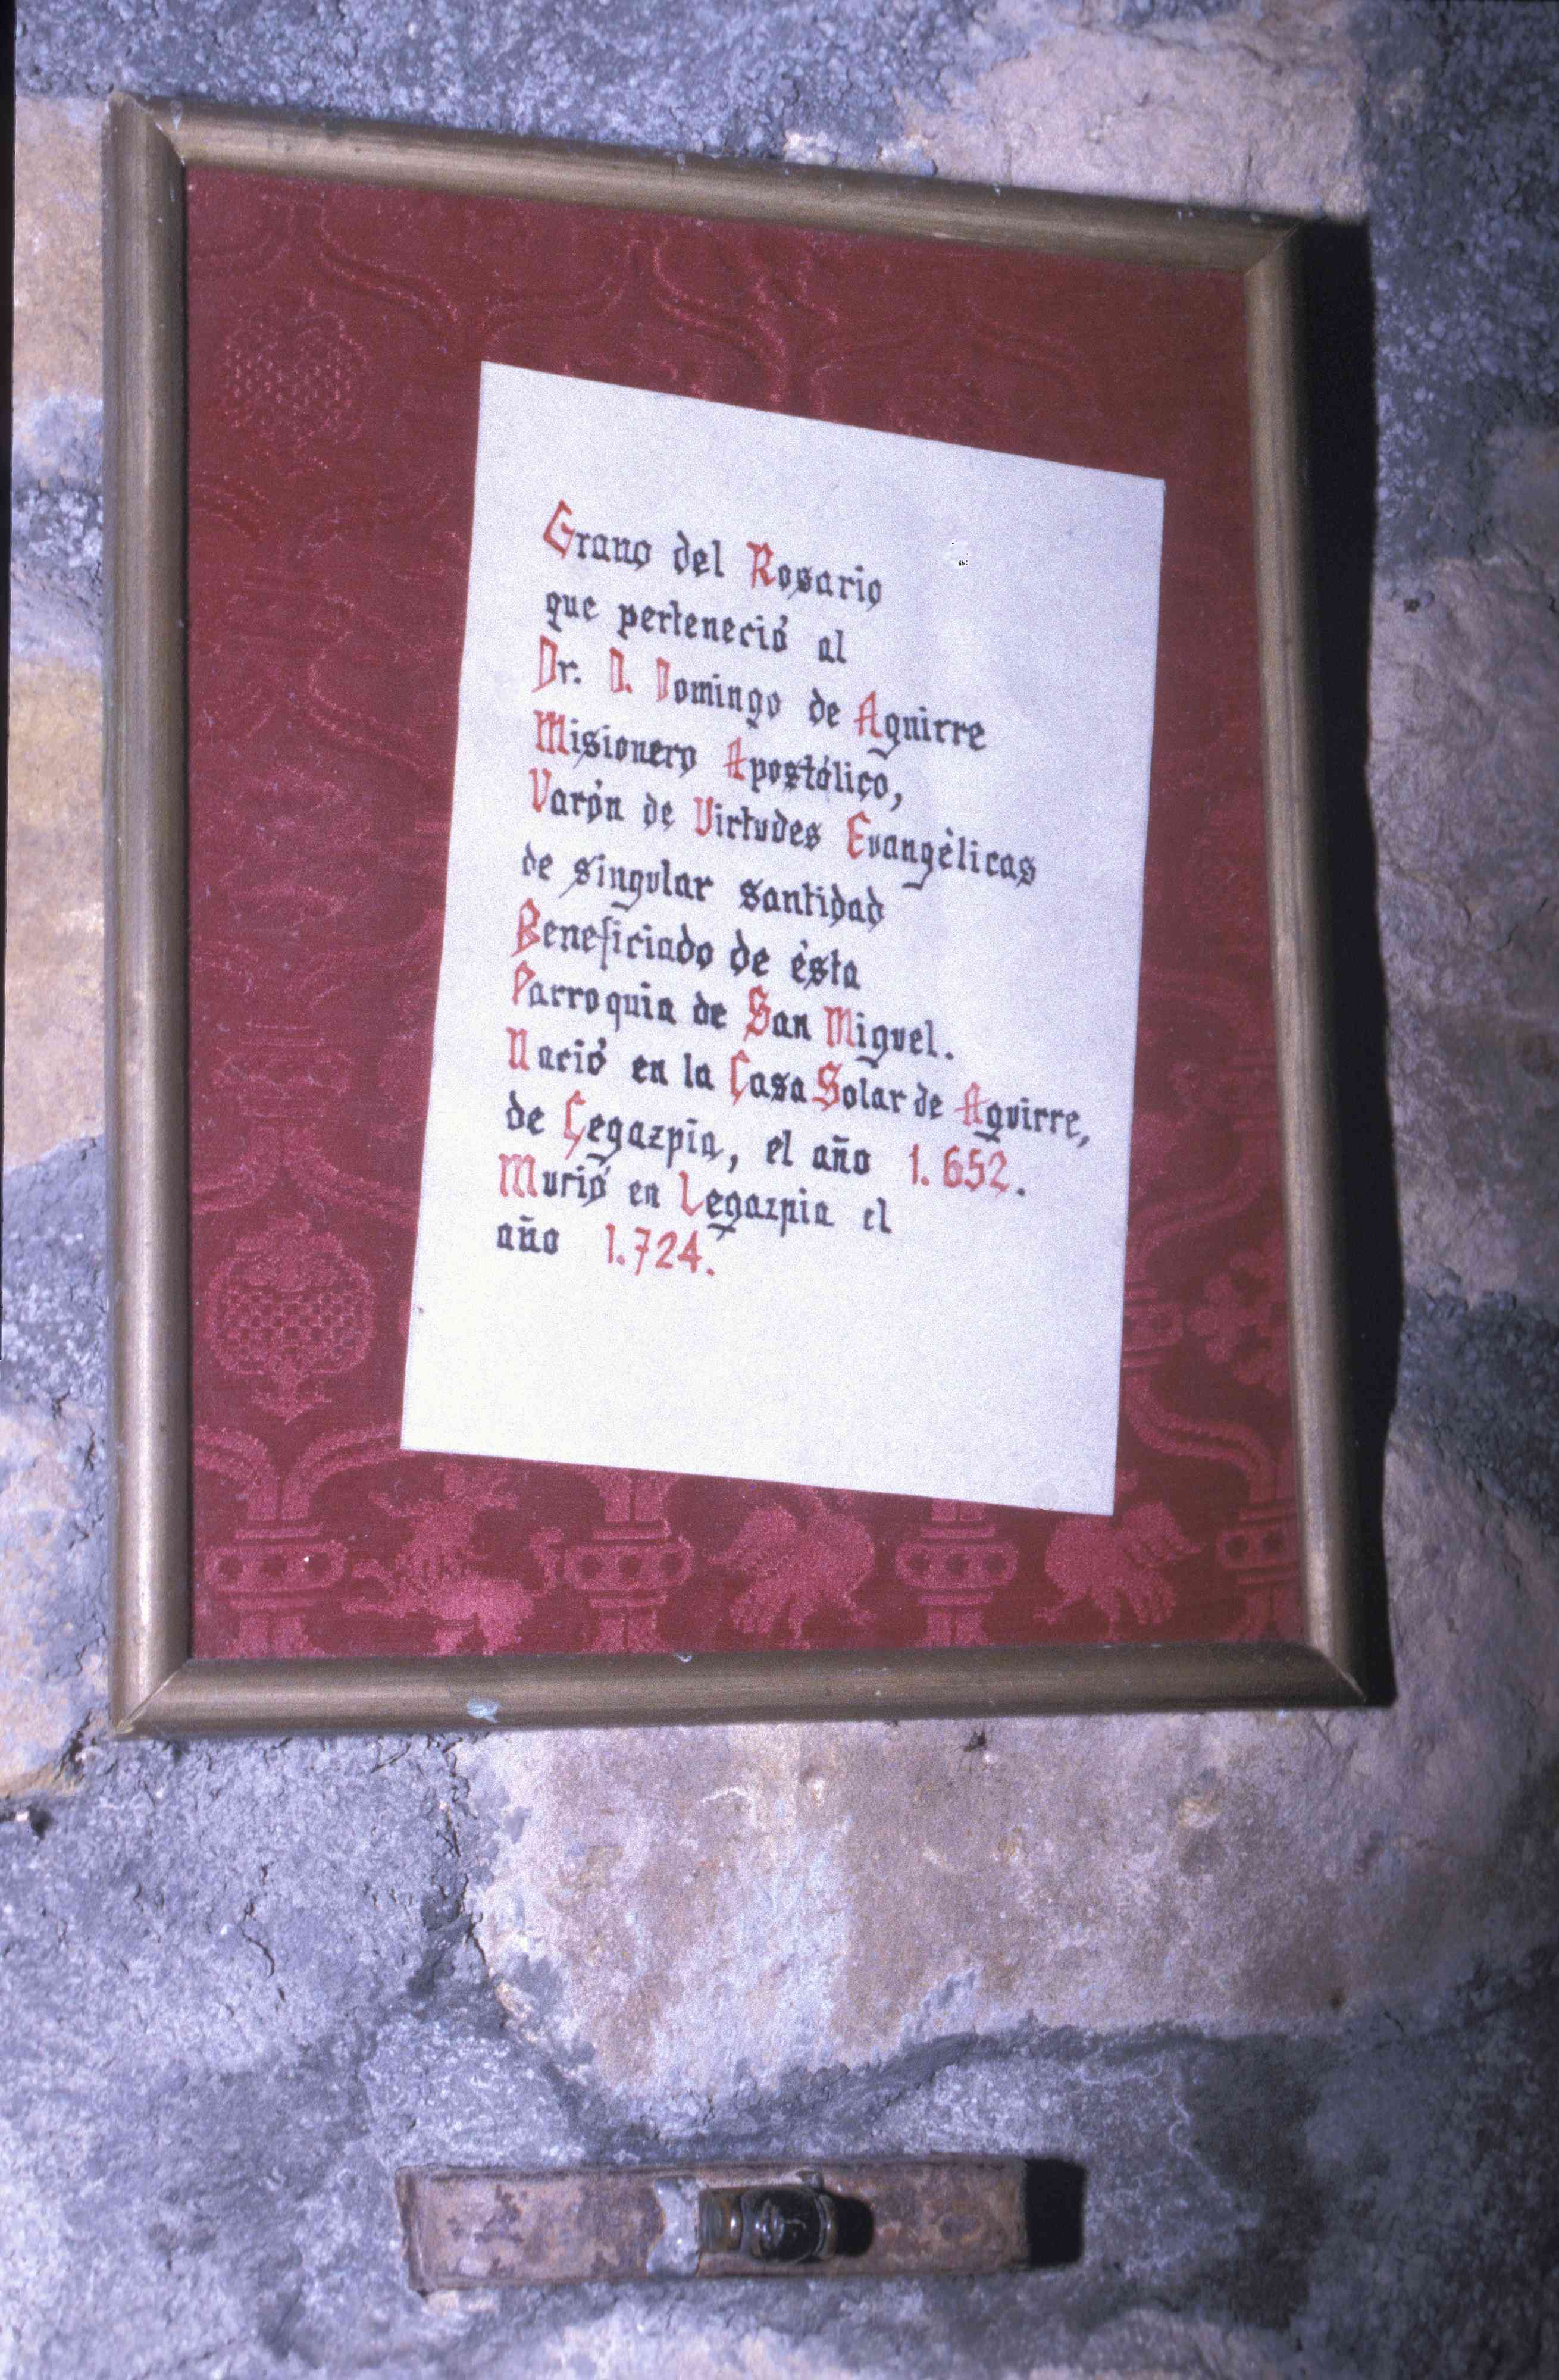 Grano del Rosario
que perteneció al
Dr. D. Domingo de Aguirre
Misionero Apostólico,
Varón de Virtudes Evangèlicas
de singular santidad
Beneficiado de èsta
Parroquia de San Miguel.
Nació en la Casa Solar de Aguirre,
de Legazpia, el año 1.652.
Murió en Legazpia el
año 1.724.